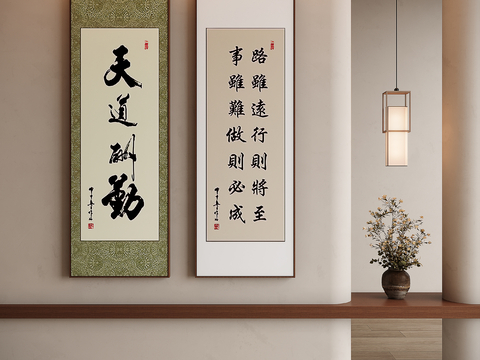 天道酬勤
路雖遠行則將至
事雖難做則必成